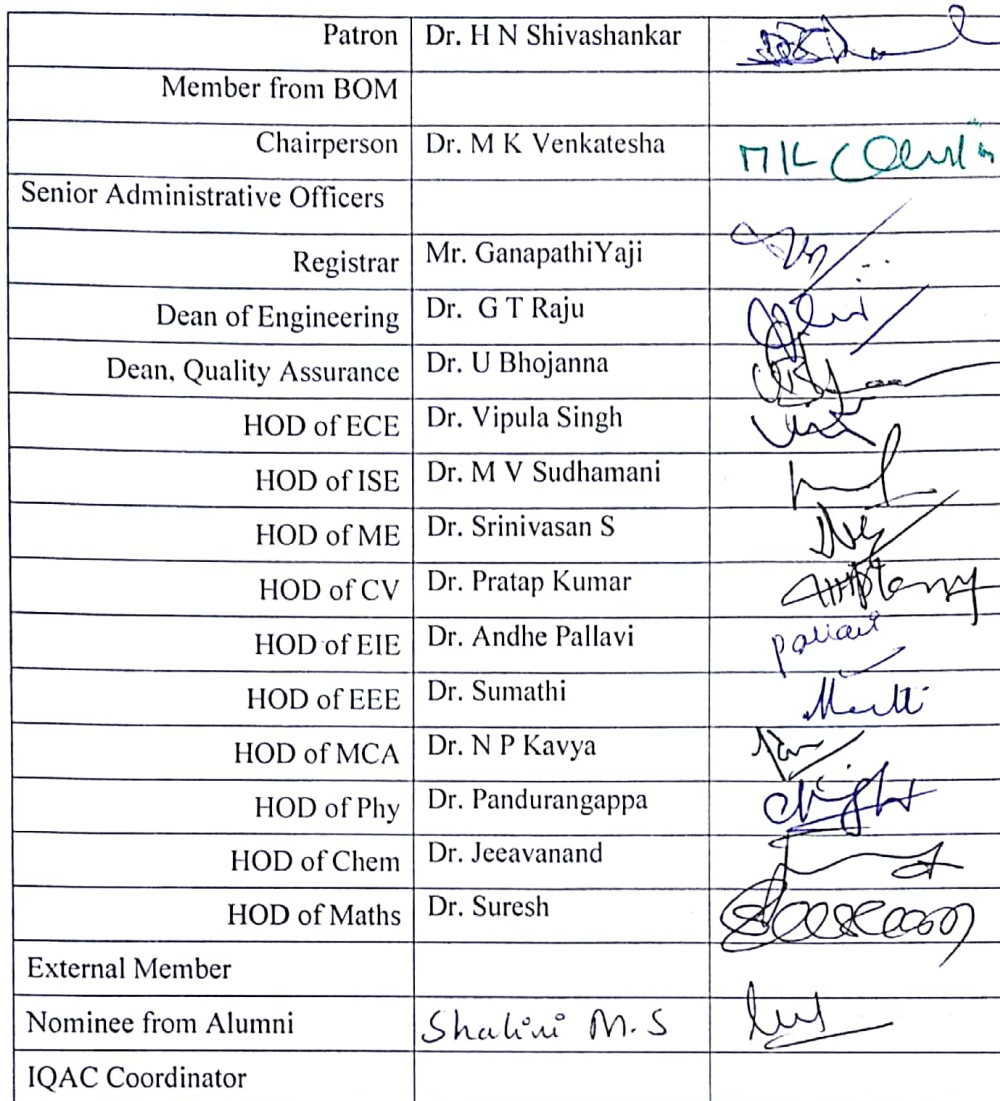 Patron Dr. H N Shivashankar
Member from BOM
Chairperson Dr. M K Venkatesha
Senior Administrative Officers
Registrar Mr. GanapathiYaji
Dean of Engineering Dr. G T Raju
Dean, Quality Assurance Dr. U Bhojanna
HOD of ECE Dr. Vipula Singh
HOD of ISE Dr. M V Sudhamani
HOD of ME Dr. Srinivasan S
HOD of CV Dr. Pratap Kumar
HOD of EIE Dr. Andhe Pallavi Pallavi
HOD of EEE Dr. Sumathi
HOD of MCA Dr. N P Kavya
HOD of Phy Dr. Pandurangappa
HOD of Chem Dr. Jeeavanand
HOD of Maths Dr. Suresh
External Member
Nominee from Alumni Shalini M.S
IQAC Coordinator